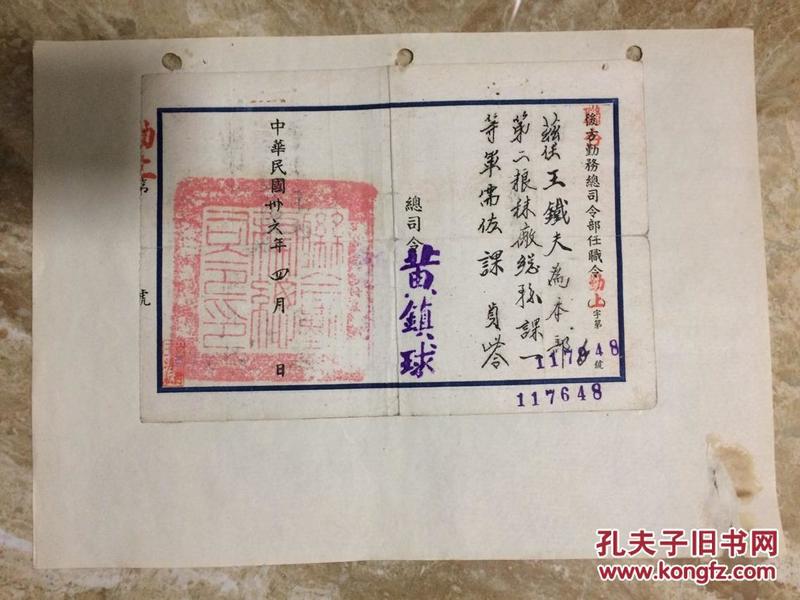 後方勤務總司令部任職令
聯
勤上
字第
117648
號
茲任王鐵夫為本部
第二粮秣廠總務課一
等軍需佐課員
總司令
黃鎮球
中華民國卅六年四月 日
117648
勤上
第
號
孔夫子旧书网
www.kongfz.com